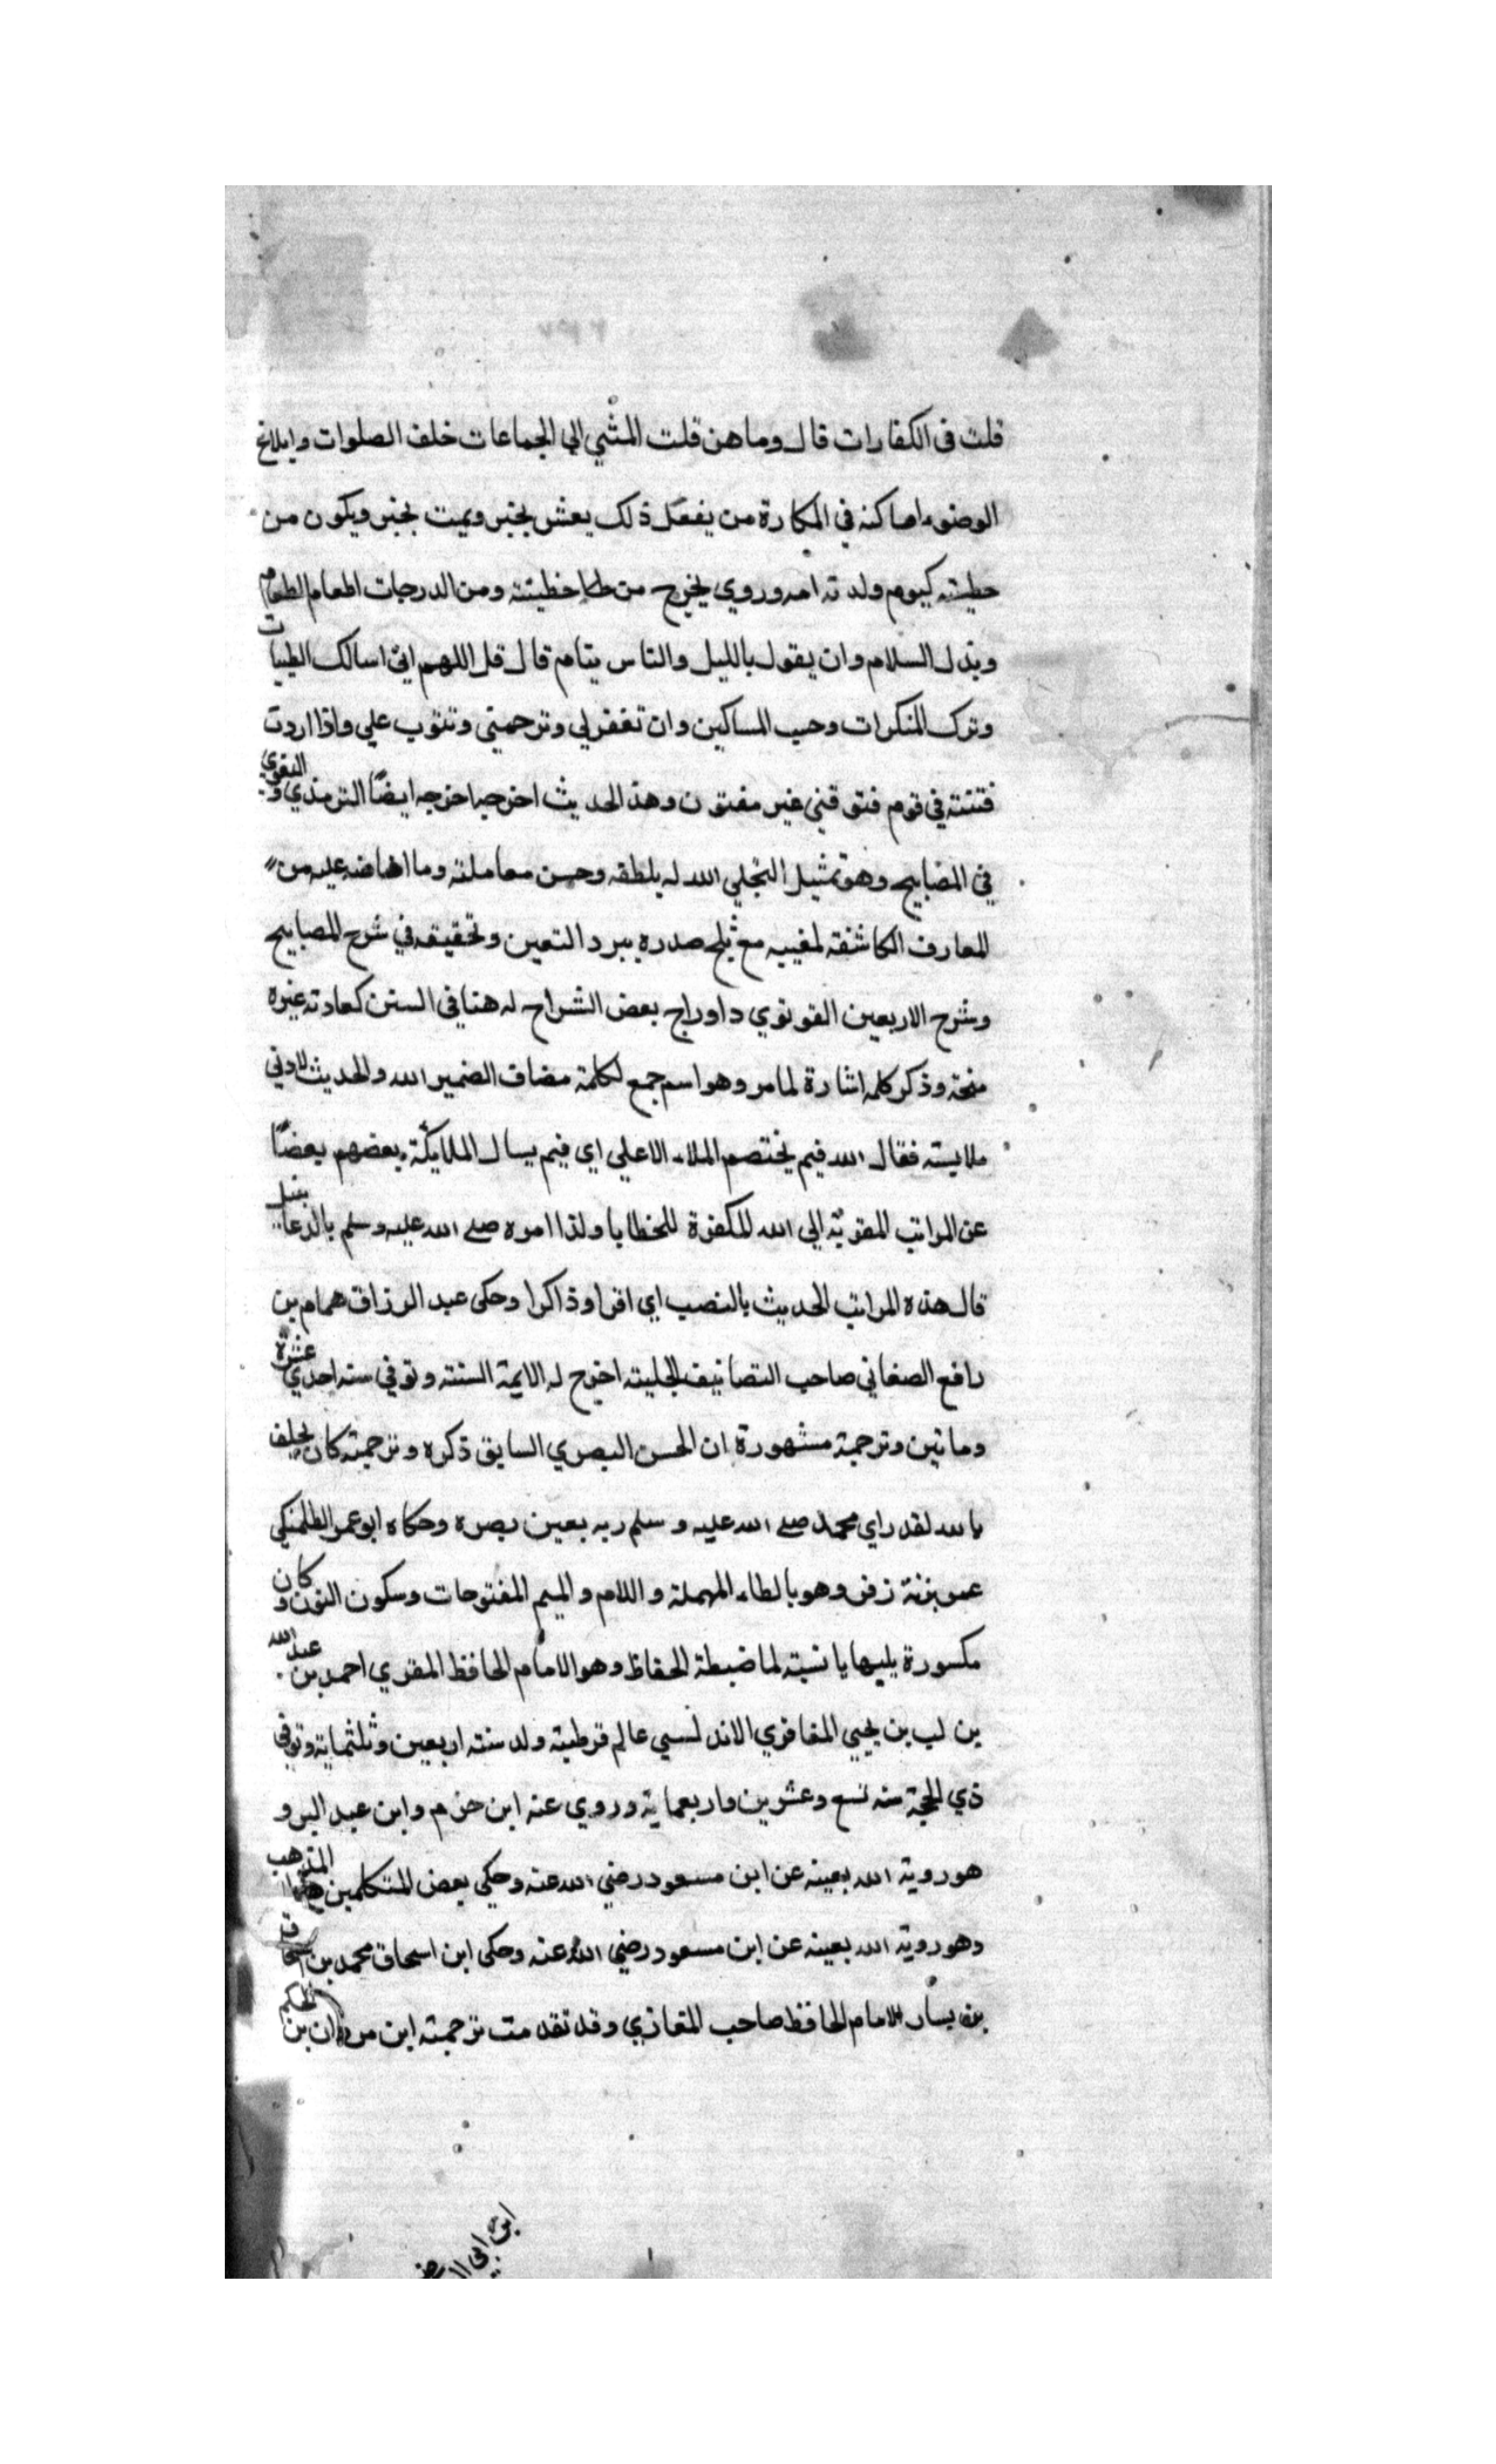 قلت فى الكفارات قال وما هن قلت المشي الي الجماعات خلف الصلوات وابلاغ
الوضوء اماكنه في المكارة من يفعل ذلك يعش بخير ويمت بخير ويكون من
خطيته كيوم ولدته امه وروي يخرج من خطيئته ومن الدرجات اطعام الطعام
وبذل السلام وان يقول بالليل والناس ينام قال قل اللهم اني اسالك الطيبات
وترك المنكرات وحب المساكين وان تغفرلي وترحمني وتتوب علي واذا اردت
فتنته في قوم فتوقني غير مفتون وهذ الحديث اخرجه ايضًا الترمذي والبغوي
في المصابيح وهو تمثيل التجلي الله له بلطفه وحسن معاملته وما افاضه عليه من
المعارف الكاشفة لمغيبه مع ثلج صدره ببرد التعين وتحقيقه في شرح المصابيح
وشرح الاربعين القونوي داوراج بعض الشراح له هنا في السنن كعادته غيره
منحة وذكر كلمه اشارة لما مر وهو اسم جمع لكلمة مضاف الضمير الله والحديث لادني
ملابسته فقال الله فيم يختصم الملاء الاعلي اي فيم يسال الملايكة بعضهم بعضًا
عن المراتب المقوية الي الله المكفرة للخطايا ولذا امره صلى الله عليه وسلم بالدعا
قال هذه المراتب الحديث بالنصب اي اقرا وذاكرا وحكى عبد الرزاق همام بن
رافع الصغاني صاحب التصانيف الجليته اخرج له الايمة الستة وتوفي سنه احدي عشرة
وماتين وترجمة مشهورة ان الحسن البصري السابق ذكره وترجمته كان يحلف
بالله لقد راي محمد صلى الله عليه وسلم ربه بعين بصره وحكاه ابو عمر الطلمنكي
وهو بالطاء المهملة واللام والميم المفتوحات وسكون النون وكان
مكسورة يليها يا نسبته لما ضبطة الحفاظ وهو الامام الحافظ المقري احمد بن عبد الله
بن لب بن يحيي المغافري الاندلسي عالم قرطبته ولد سنته اربعين وثلثماية وتوفي
ذي الحجة سنه تسع وعشرين واربعماية وروي عنه ابن حزم وابن عبد البر و
هوروية الله بعينه عن ابن مسعود رضي الله عنه وحكي بعض المتكلمين هذا المذهب
وهوروية الله بعينه عن ابن مسعود رضي الله عنه وحكى ابن اسحاق محمد بن اسحاق
بن يسار الامام الحافظ صاحب المغازي وقد تقدمت ترجمته ابن مروان بن الحكم
ابن ابي